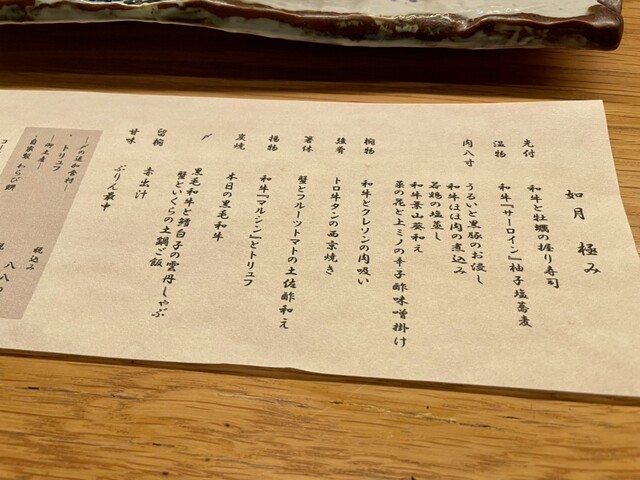 如月 極み
先付
和牛と牡蠣の握り寿司
温物
和牛『サーロイン』柚子塩蕎麦
肉八寸
うるいと黒豚のお浸し
和牛ほほ肉の煮込み
若鶏の塩蒸し
和牛葉山葵和え
菜の花と上ミノの辛子酢味噌掛け
椀物
和牛とクレソンの肉吸い
強肴
トロ牛タンの西京焼き
箸休
蟹とフルーツトマトの土佐酢和え
揚物
和牛『マルシン』とトリュフ
炭焼
本日の黒毛和牛
〆
黒毛和牛と鱈白子の雲丹しゃぶ
蟹といくらの土鍋ご飯
留椀
赤出汁
甘味
ぷりん最中
―〆の追加食材―
・トリュフ
―御土産―
・自家製 わらび餅
税込み
八八〇